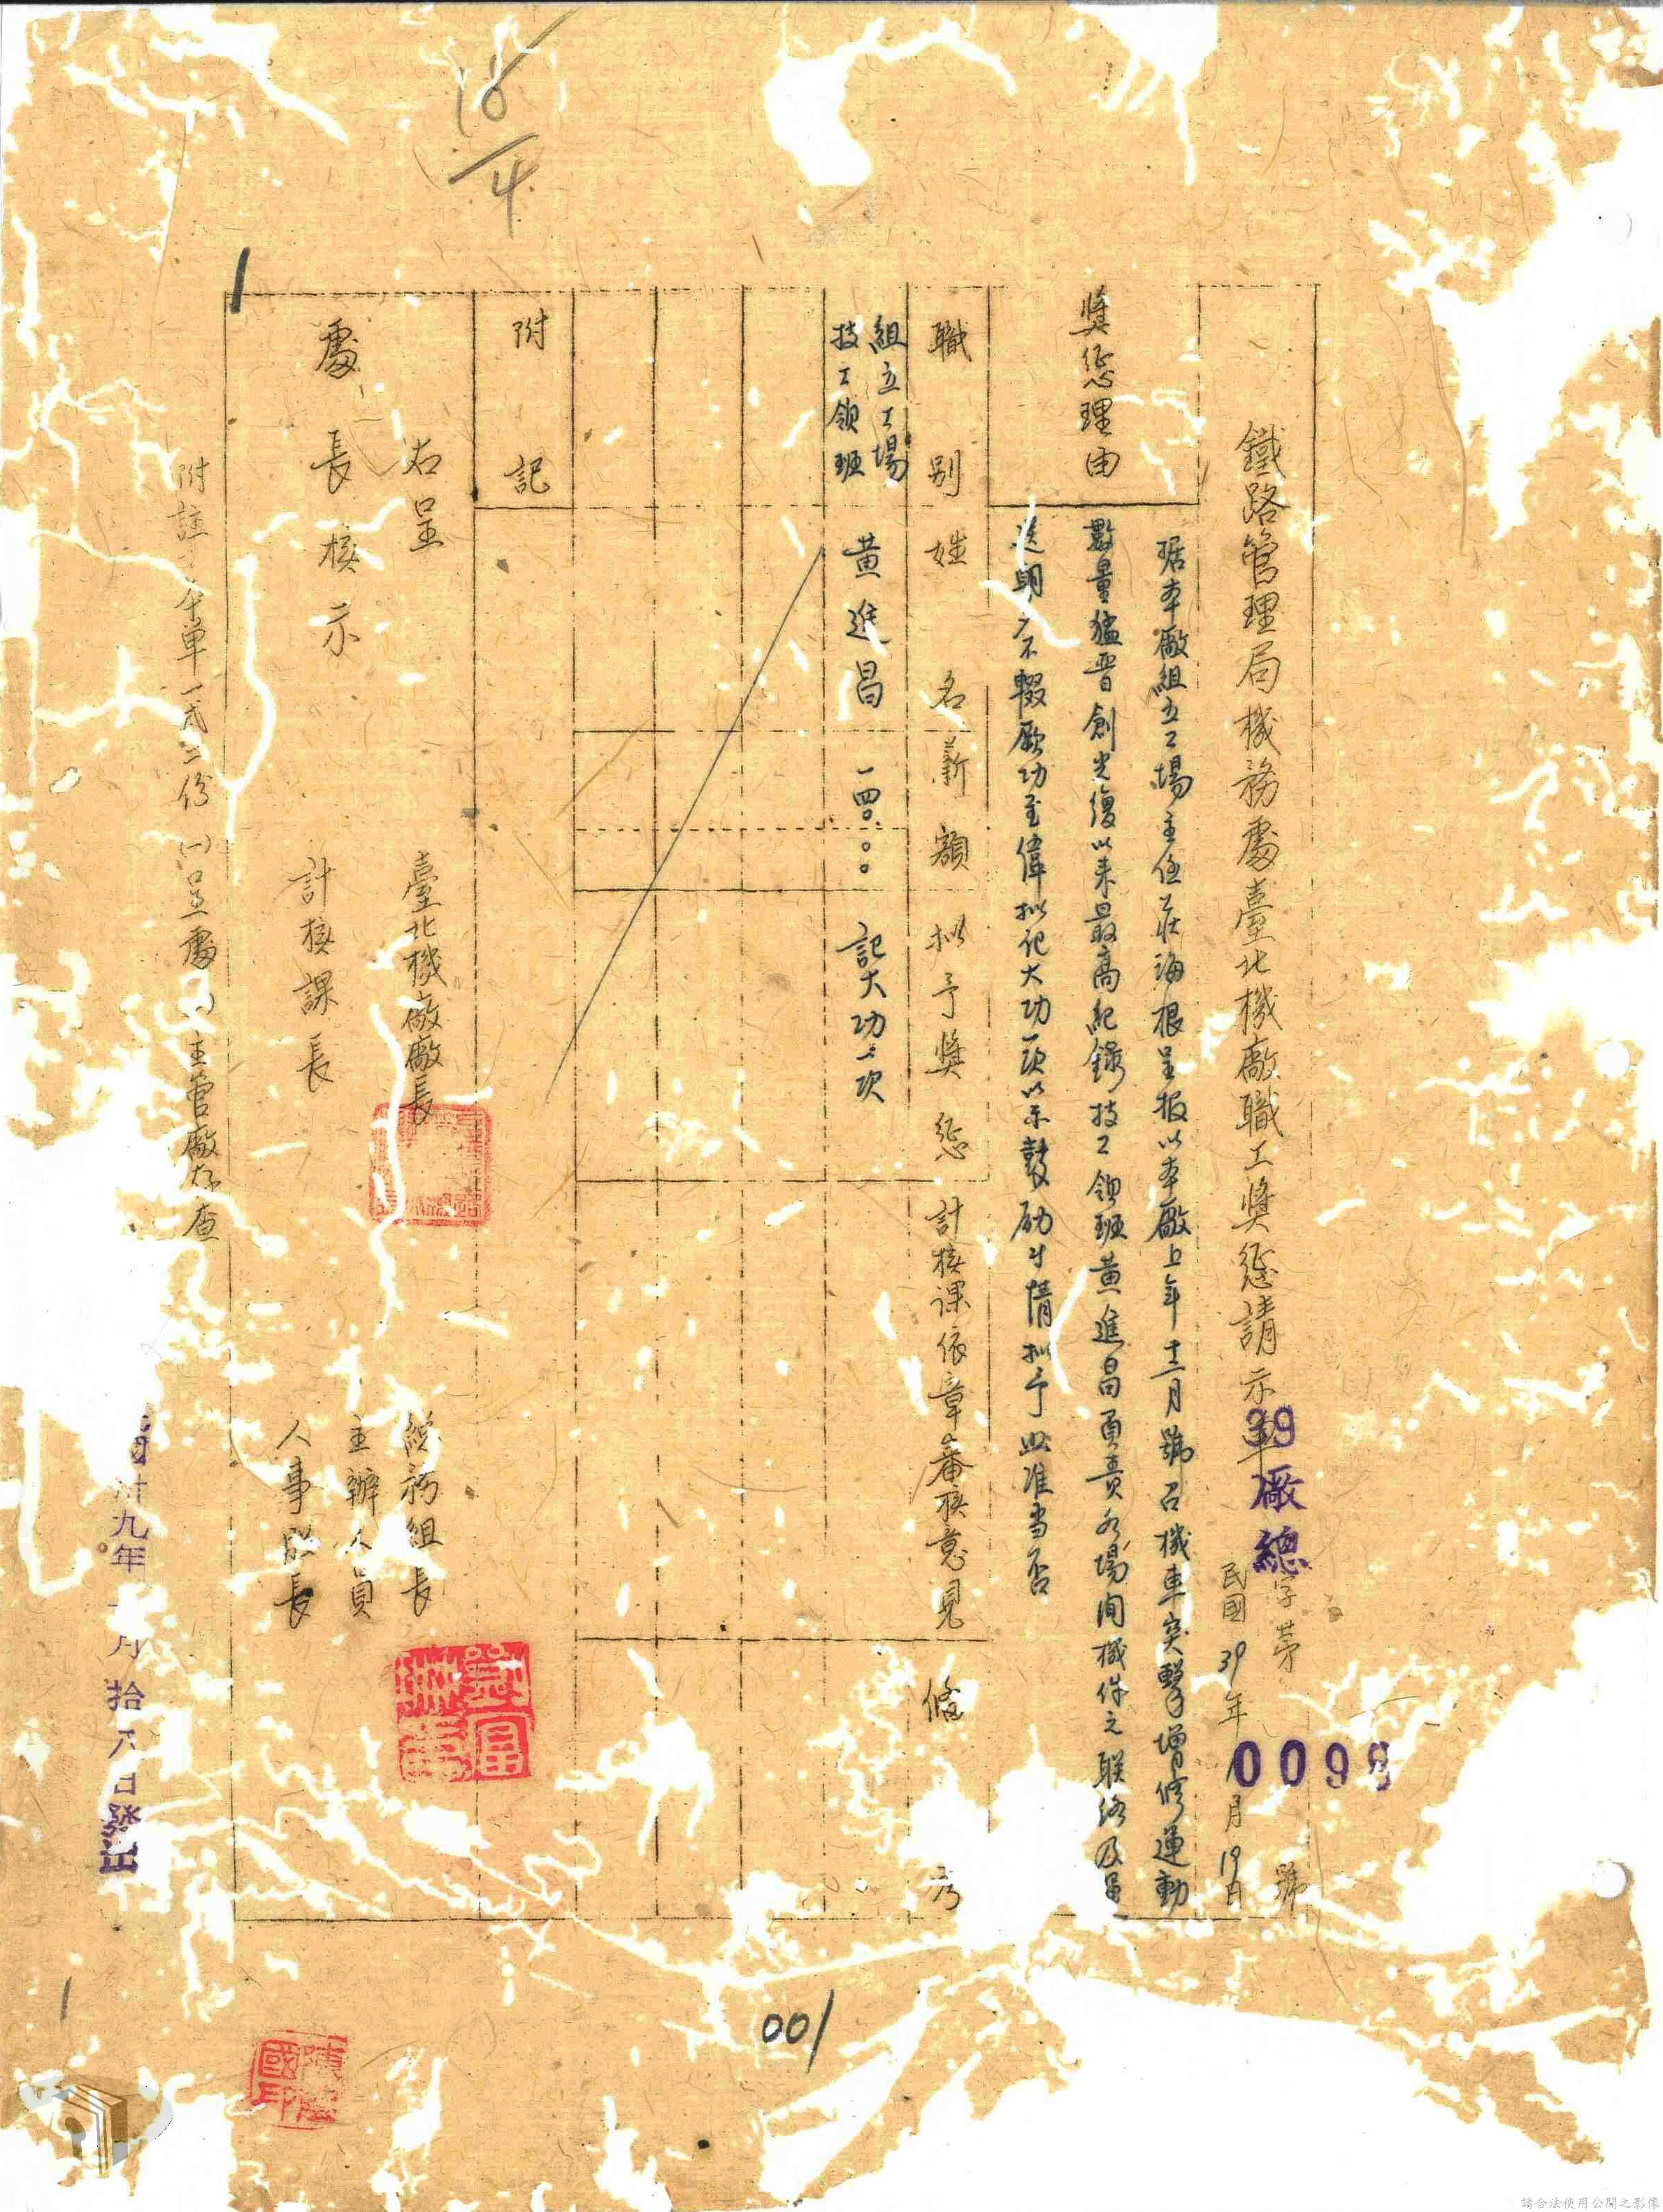 鐵路管理局機務處臺北機廠職工獎懲請示單
39廠總字第0099號
民國39年1月19日
獎懲理由
據本廠組立工場主任莊海根呈报以本廠上年十二月號召機車突擊增修運動
數量猛晋創光復以来最高紀錄技工領班黄進昌負責各場间機件之联络及
不輟厥功至偉拟记大功一次以示鼓励等情拟予照准当否
職别
姓名
薪額
拟予獎懲
計核課依章審核意見
備考
組立工場
技工領班
黄進昌
一四〇.〇〇
記大功一次
附記
右呈
處長核示
臺北機廠廠長
計核課長
總務組長
主辦人員
人事股長
附註 本單一式二份 (一)呈處 主管廠存查
九年 月拾八日發出
001
請合法使用公開之影像